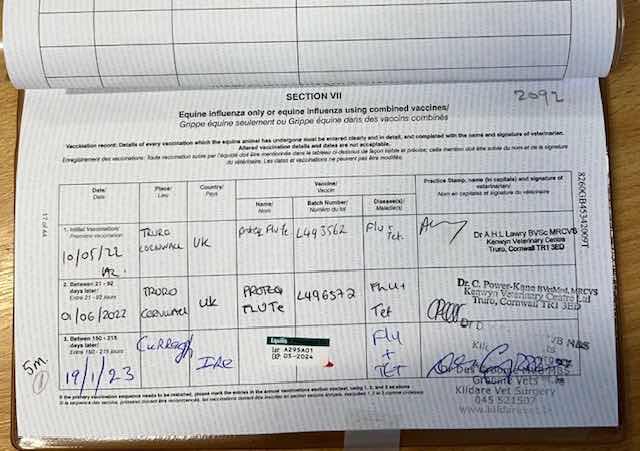 SECTION VII
2092
Equine influenza only or equine influenza using combined vaccines/
Grippe équine seulement ou Grippe équine dans des vaccins combinés
Vaccination record: Details of every vaccination which the equine animal has undergone must be entered clearly and in detail, and completed with the name and signature of veterinarian.
Altered vaccination details and dates are not acceptable.
Enregistrement des vaccinations: Toute vaccination subie par l'équidé doit être mentionnée dans le tableau ci-dessous de façon lisible et précise; cette mention doit être suivie du nom et de la signature
du vétérinaire. Les dates et vaccinations ne peuvent pas être modifiées.
17 of 44
Date/
Date
Place/
Lieu
Country/
Pays
Vaccine/
Vaccin
Name/
Nom
Batch Number/
Numéro du lot
Disease(s)/
Maladie(s)
Practice Stamp, name (in capitals) and signature of
veterinarian/
Nom en capitales et signature du vétérinaire
1. Initial Vaccination/
Première vaccination
10/05/22
TRURO
CORNWALL
UK
Proteq Flute
L493562
Flu +
Tet.
Dr A.H.L Lawry BVSc MRCVS
Kenwyn Veterinary Centre
Truro, Cornwall TR1 3ED
2. Between 21 - 92
days later/
Entre 21 - 92 jours
01/06/2022
TRURO
CORNWALL
UK
PROTEQ
FLUTE
L496572
Flu +
Tet
Dr. C. Power-Kane BVetMed, MRCVS
Kenwyn Veterinary Centre Ltd
Truro, Cornwall TR1 3ED
3. Between 150 - 215
days later/
Entre 150 - 215 jours
5m.
19/1/23
Curragh
Ire
Equilis
Lot A295A01
EXP 03-2024
Flu
+
TET
Groome Vets
Kildare Vet Surgery
045 521507
www.kildarevet.ie
If the primary vaccination sequence needs to be restarted, please mark the entries in the annual vaccinations section number, using 1, 2, and 3 as above